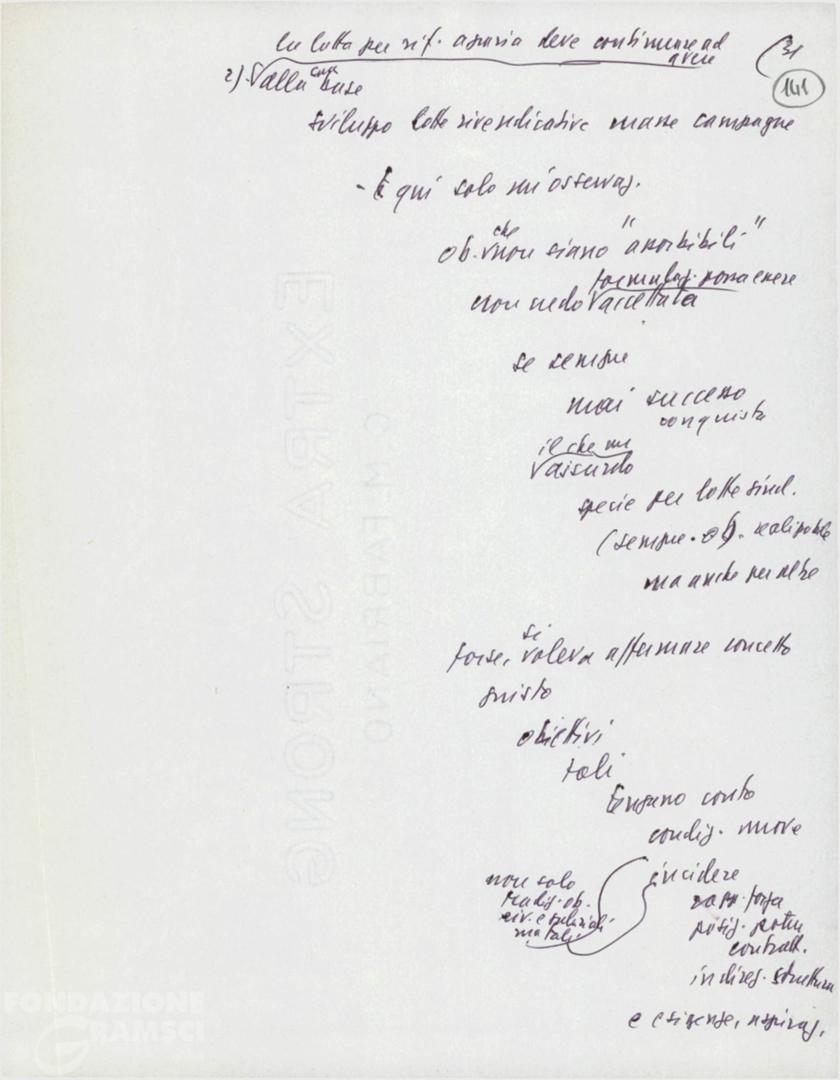 la lotta per rif. agraria deve continuare ad avere
31
141
2) alla sua base
sviluppo lotte rivendicative masse campagne
- E qui solo un'osservaz.
ob. che non siano "assorbibili"
non credo formulaz. possa essere accettata
se sempre
mai successo
conquista
il che
assurdo
specie per lotte sind.
(sempre ob. realizzabile
ma anche per altre
forse, si voleva affermare concetto
giusto
obiettivi
tali
tengano conto
condiz. nuove
incidere
non solo
tradiz. ob.
ma tali
rapp. forza
posiz. potere
contratt.
in direz. struttura
e esigenze, aspiraz.
EXTRA STRONG
C.M. FABRIANO
FONDAZIONE
GRAMSCI